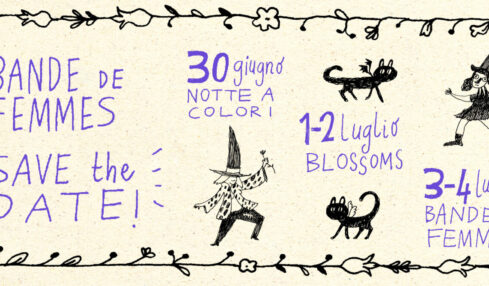 BANDE DE
FEMMES
SAVE the
DATE!
30 giugno
NOTTE A
COLORI
1-2 luglio
BLOSSOMS
3-4 lu
BANDE
FEMM